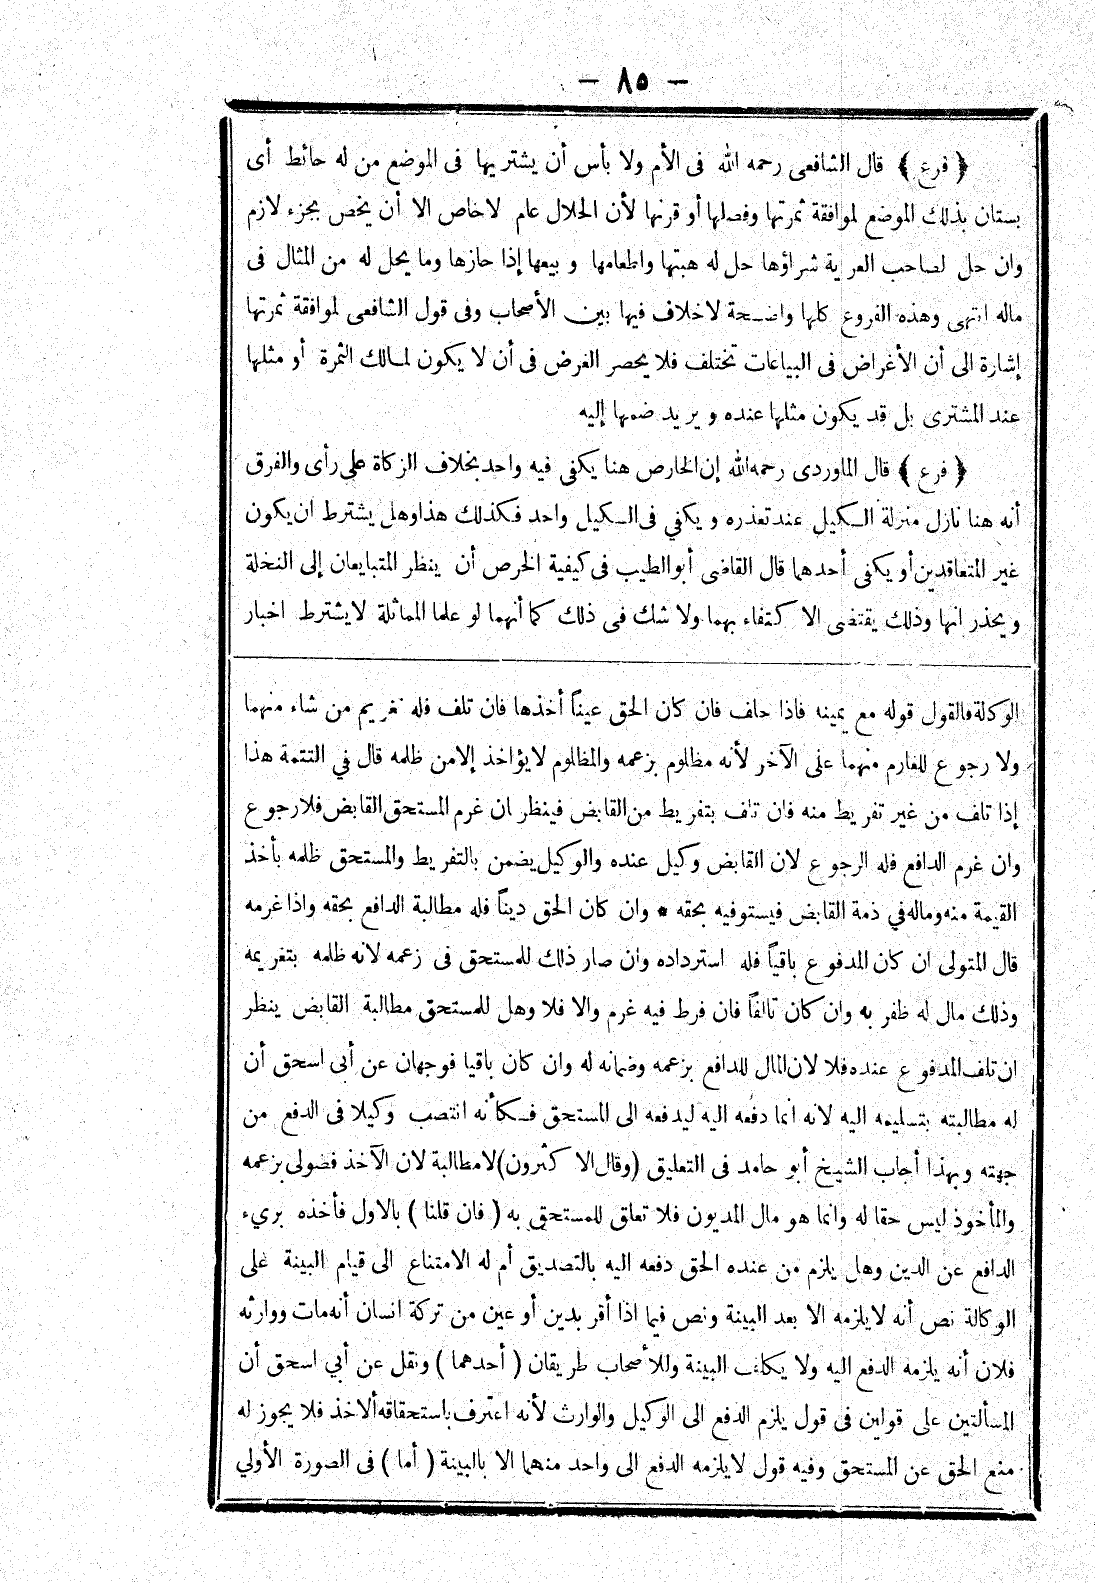 — ٨٥ —
﴿ فرع ﴾ قال الشافعى رحمه الله فى الأم ولا بأس أن يشتريها فى الموضع من له حائط أى
بستان بذلك الموضع لموافقة ثمرتها وفصلها أو قربها لأن الحلال عام لا خاص الا أن يخص بجزء لازم
وان حل لصاحب العرية شراؤها حل له هبتها واطعامها وبيعها إذا حازها وما يحل له من المثال فى
ماله انتهى وهذه الفروع كلها واضحة لا خلاف فيها بين الأصحاب وفى قول الشافعى لموافقة ثمرتها
إشارة الى أن الأغراض فى البياعات تختلف فلا يحصر الغرض فى أن لا يكون لمالك الثمرة أو مثلها
عند المشترى بل قد يكون مثلها عنده ويريد ضمها إليه
﴿ فرع ﴾ قال الماوردى رحمه الله إن الخارص هنا يكفى فيه واحد بخلاف الزكاة على رأى والفرق
أنه هنا نازل منزلة الكيل عند تعذره ويكفي فى الكيل واحد فكذلك هذا وهل يشترط ان يكون
غير المتعاقدين أو يكفى أحدهما قال القاضى أبو الطيب فى كيفية الخرص أن ينظر المتبايعان إلى النخلة
ويحذرانها وذلك يقتضى الاكتفاء بهما ولا شك فى ذلك كما أنهما لو علما المماثلة لا يشترط اخبار
الوكالة فالقول قوله مع يمينه فاذا حلف فان كان الحق عيناً أخذها فان تلف فله تغريم من شاء منهما
ولا رجوع للغارم منهما على الآخر لأنه مظلوم بزعمه والمظلوم لا يؤاخذ إلا من ظلمه قال في التتمة هذا
إذا تلف من غير تفريط منه فان تلف بتفريط من القابض فينظر ان غرم المستحق القابض فلا رجوع
وان غرم الدافع فله الرجوع لان القابض وكيل عنده والوكيل يضمن بالتفريط والمستحق ظلمه بأخذ
القيمة منه وماله في ذمة القابض فيستوفيه بحقه * وان كان الحق ديناً فله مطالبة الدافع بحقه واذا غرمه
قال المتولى ان كان المدفوع باقياً فله استرداده وان صار ذلك للمستحق فى زعمه لانه ظلمه بتغريمه
وذلك مال له ظفر به وان كان تالفاً فان فرط فيه غرم والا فلا وهل للمستحق مطالبة القابض ينظر
ان تلف المدفوع عنده فلا لان المال للدافع بزعمه وضمانه له وان كان باقيا فوجهان عن أبى اسحق أن
له مطالبته بتسليمه اليه لانه انما دفعه اليه ليدفعه الى المستحق فكأنه انتصب وكيلا فى الدفع من
جهته وبهذا أجاب الشيخ أبو حامد فى التعليق (وقال الاكثرون) لا مطالبة لان الآخذ فضولى بزعمه
والمأخوذ ليس حقا له وانما هو مال المديون فلا تعلق للمستحق به ( فان قلنا ) بالاول فأخذه بريء
الدافع عن الدين وهل يلزم من عنده الحق دفعه اليه بالتصديق أم له الامتناع الى قيام البينة على
الوكالة نص أنه لا يلزمه الا بعد البينة ونص فيما اذا أقر بدين أو عين من تركة انسان أنه مات ووارثه
فلان أنه يلزمه الدفع اليه ولا يكلف البينة وللأصحاب طريقان ( أحدهما ) ونقل عن أبي اسحق أن
المسألتين على قولين فى قول يلزم الدفع الى الوكيل والوارث لأنه اعترف باستحقاقه ألاخذ فلا يجوز له
منع الحق عن المستحق وفيه قول لا يلزمه الدفع الى واحد منهما الا بالبينة ( أما ) فى الصورة الأولي